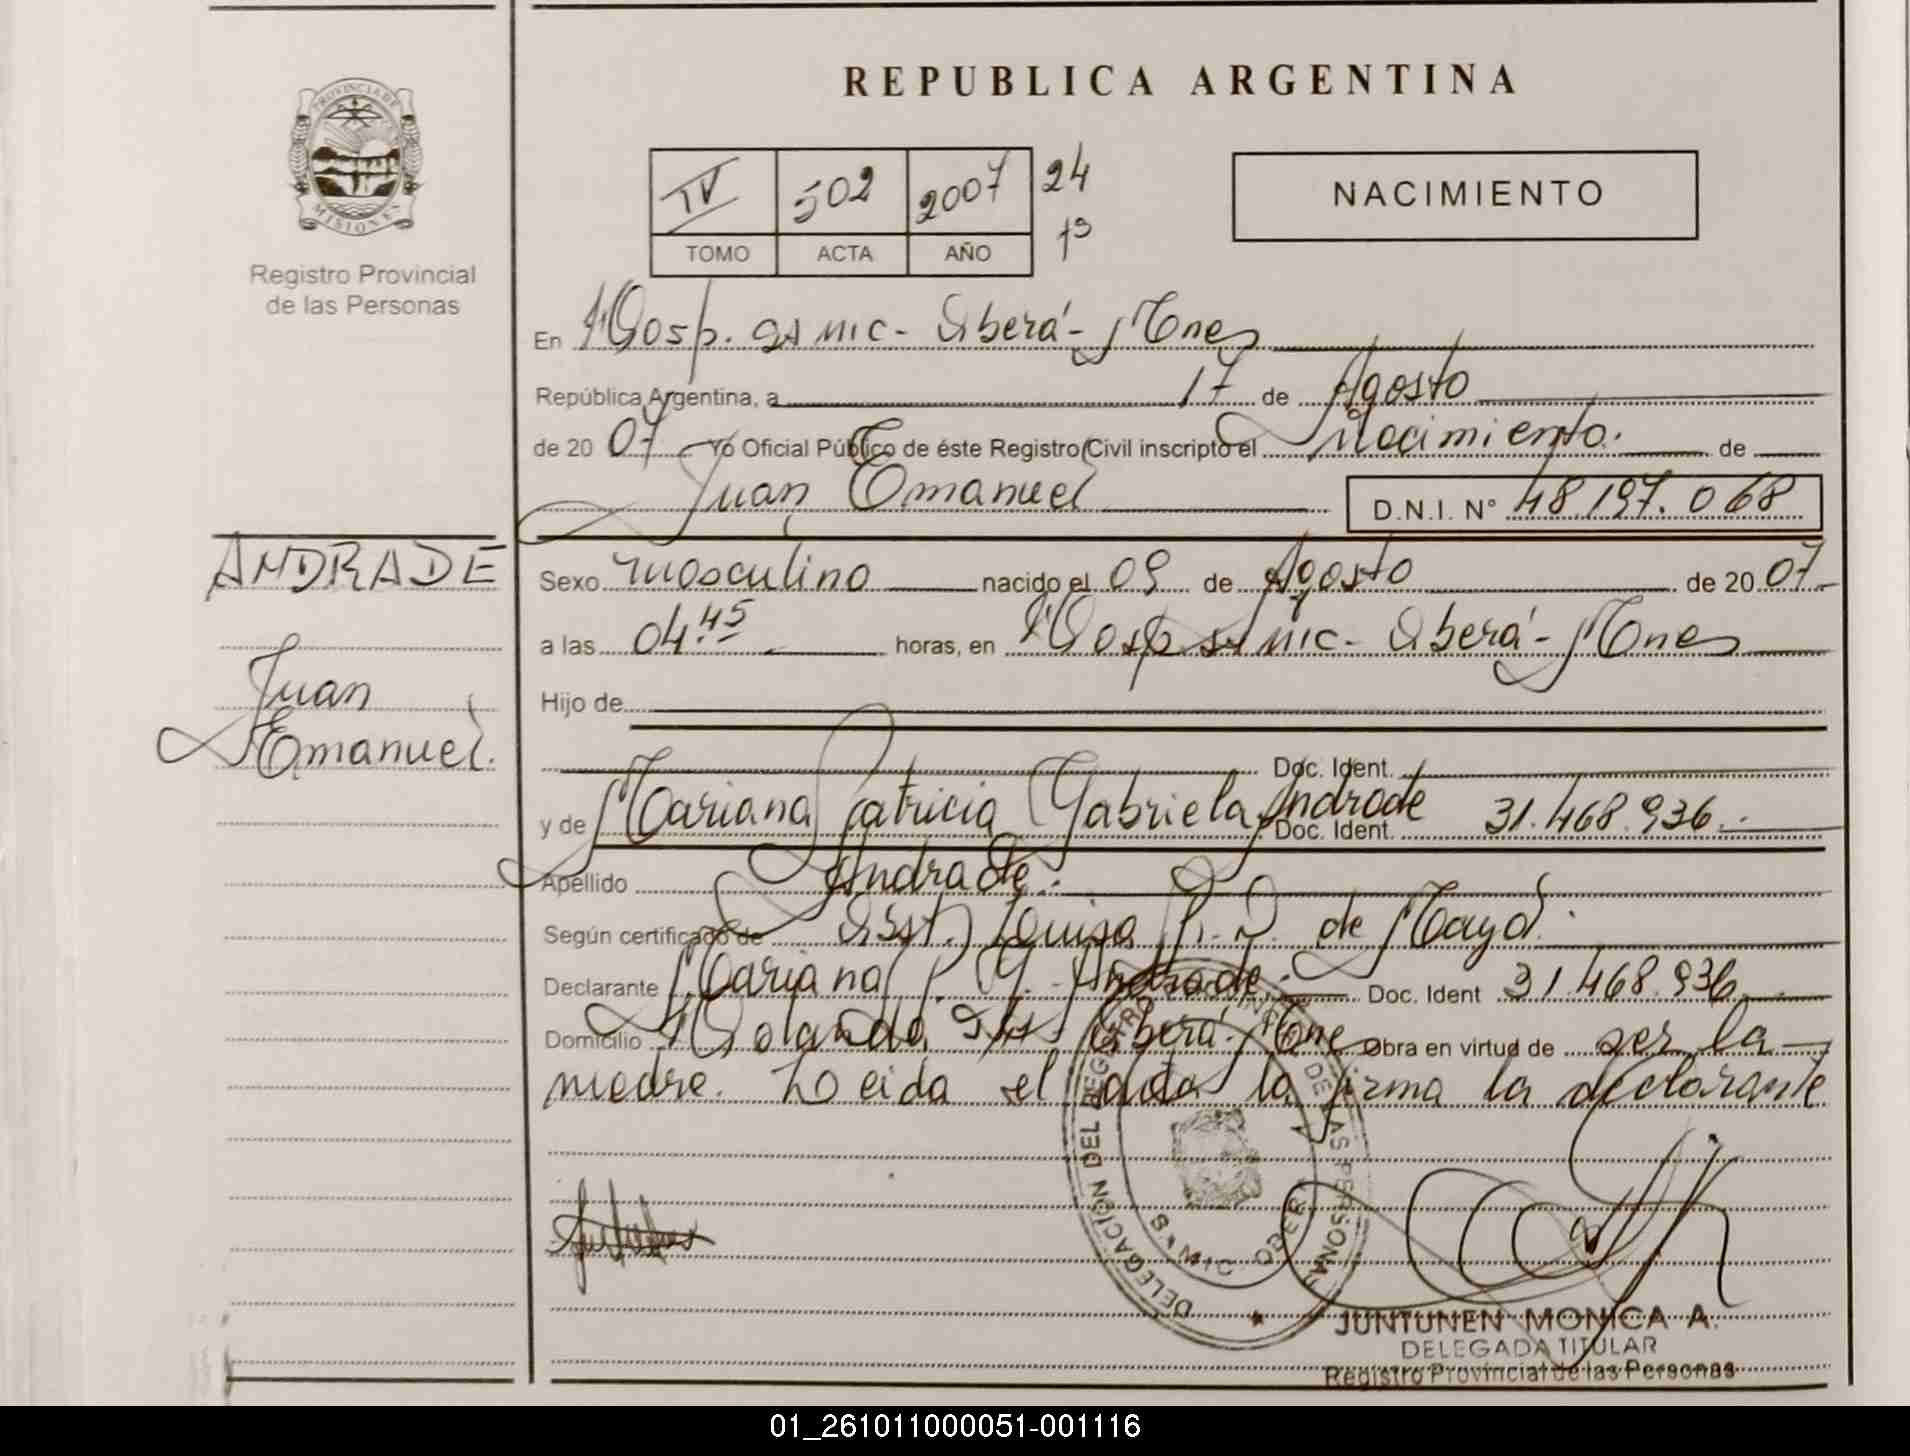 REPUBLICA ARGENTINA
PROVINCIA DE
MISIONES
Registro Provincial
de las Personas
IV 502 2007 24
TOMO ACTA AÑO 1º
NACIMIENTO
En Hosp. SAMIC - Oberá - Mnes
República Argentina, a 17 de Agosto
de 2007 Yo Oficial Público de éste Registro Civil inscripto el Nacimiento. de
Juan Emanuel D.N.I. Nº 48.197.068
ANDRADE
Juan
Emanuel.
Sexo masculino nacido el 09 de Agosto de 2007
a las 04:45 horas, en Hosp. SAMIC - Oberá - Mnes
Hijo de
Doc. Ident.
y de Mariana Patricia Gabriela Andrade Doc. Ident. 31.468.936.
Apellido Andrade.
Según certificado de Luisa de Mayo.
Declarante Mariana P. G. Andrade. Doc. Ident 31.468.936
Domicilio Oberá - Mnes Obra en virtud de ser la
madre. Leida el acta la firma la declarante
DELEGACION DEL REGISTRO PROVINCIAL DE LAS PERSONAS
S. MIC OBERA
JUNTUNEN MONICA A.
DELEGADA TITULAR
Registro Provincial de las Personas
01_261011000051-001116